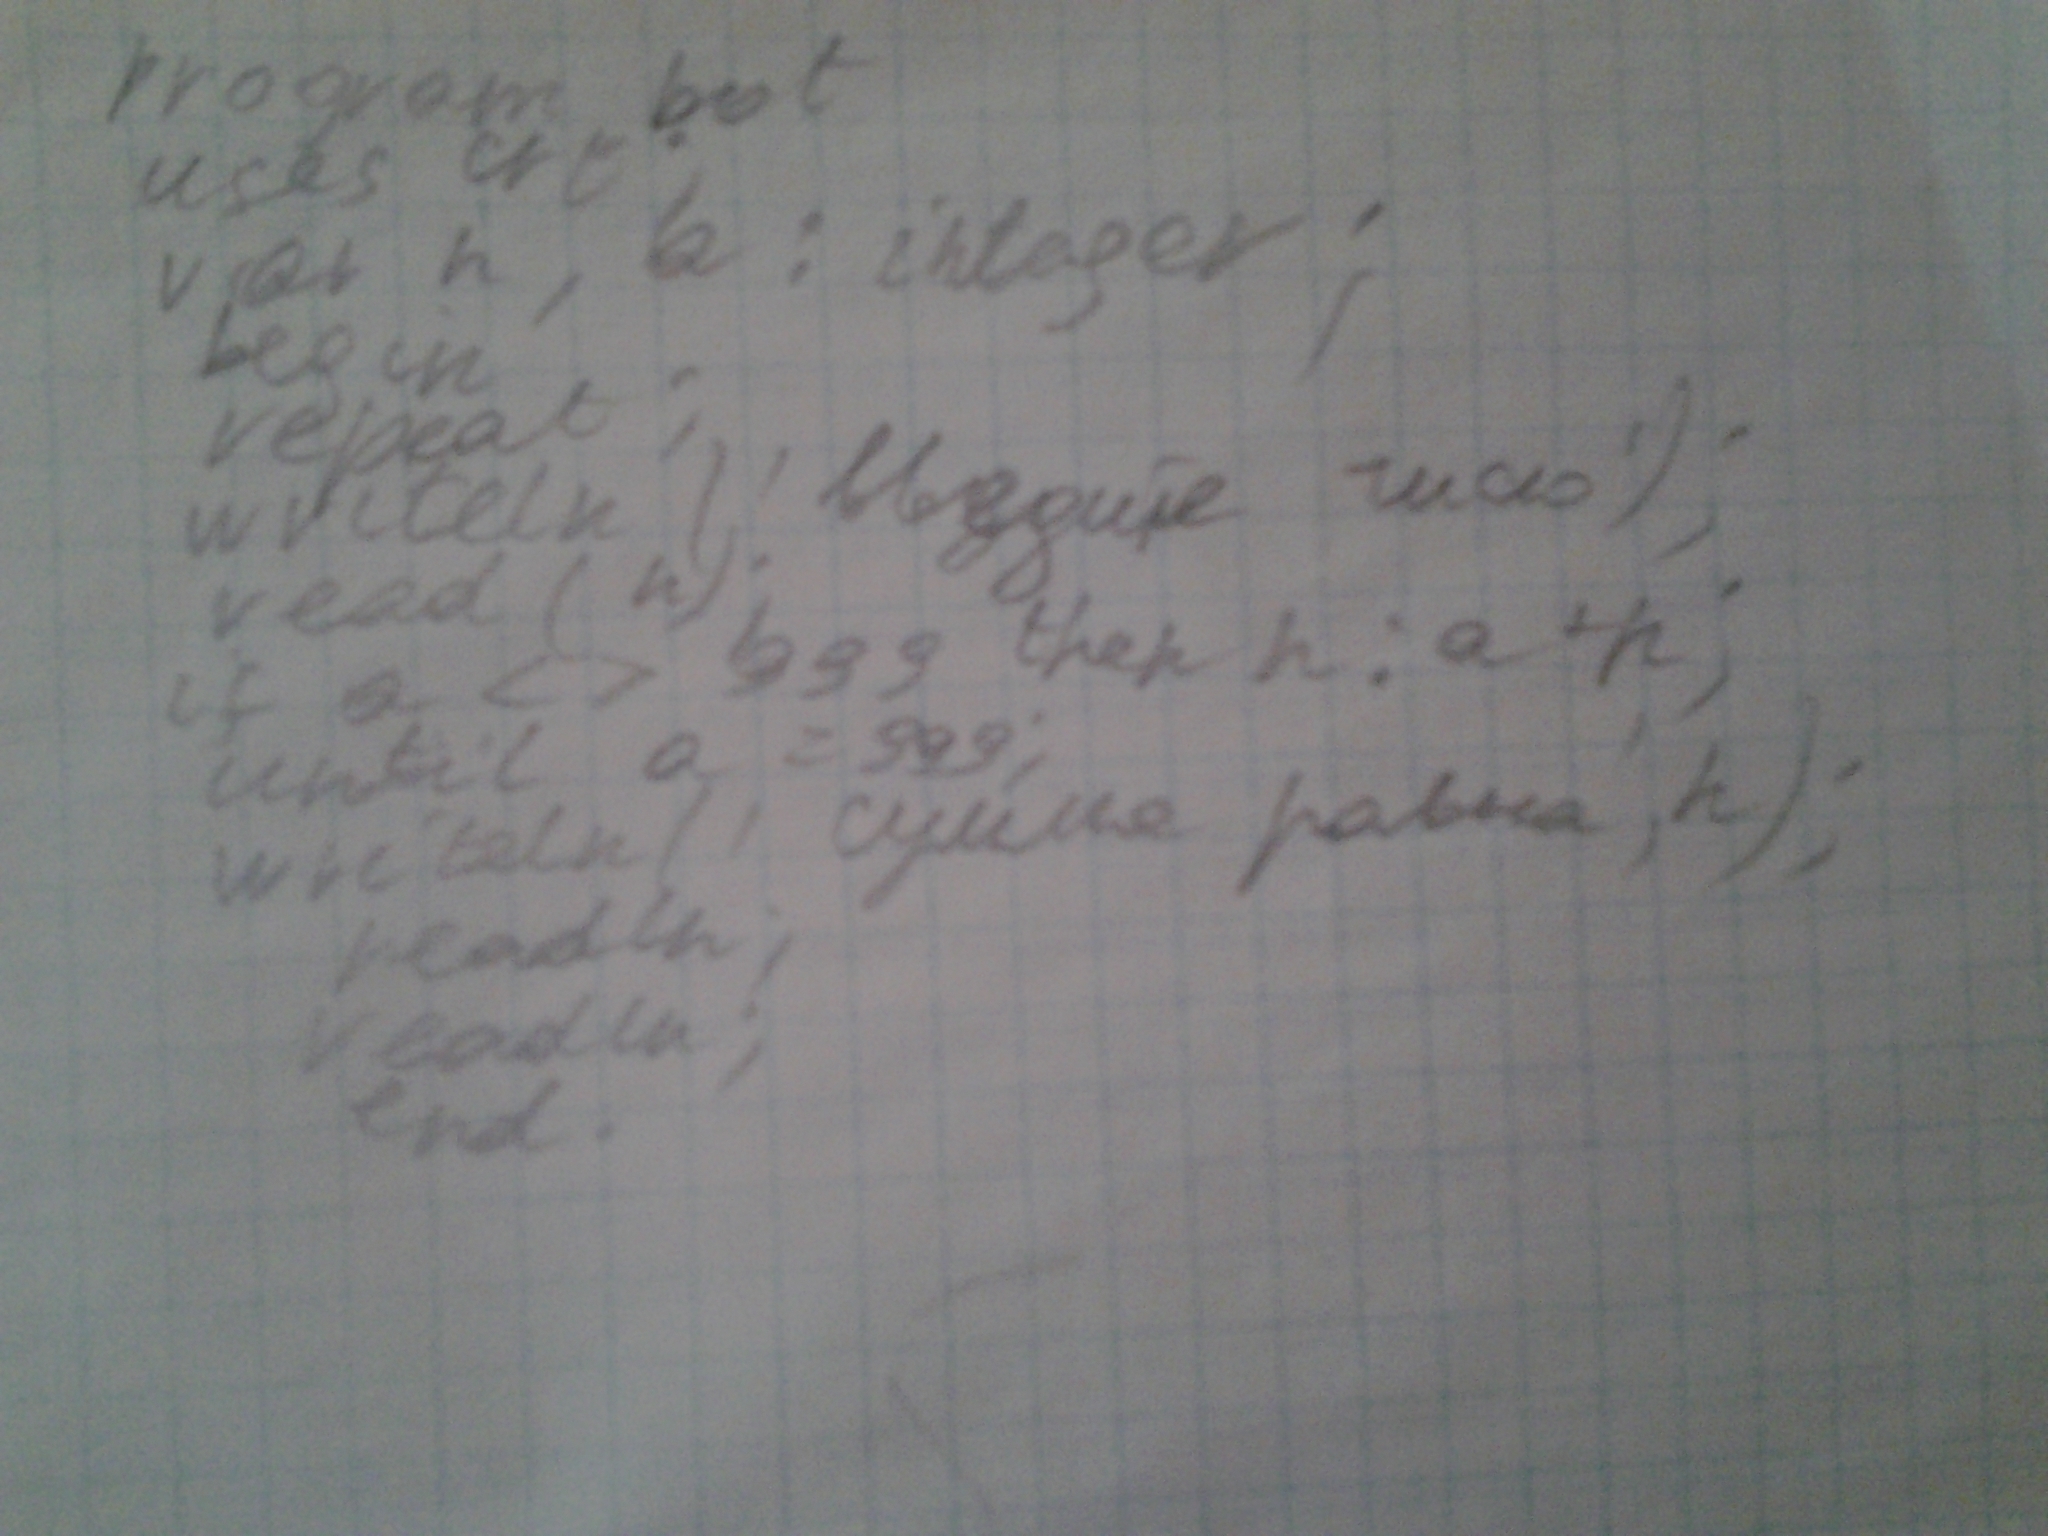 program bot
uses crt;
var n, a : intager;
begin
repeat;
writeln (' Введите число');
read (n);
if a <> 999 then n : a + n;
until a = 999;
writeln (' сумма равна', n);
readln;
readln;
end.